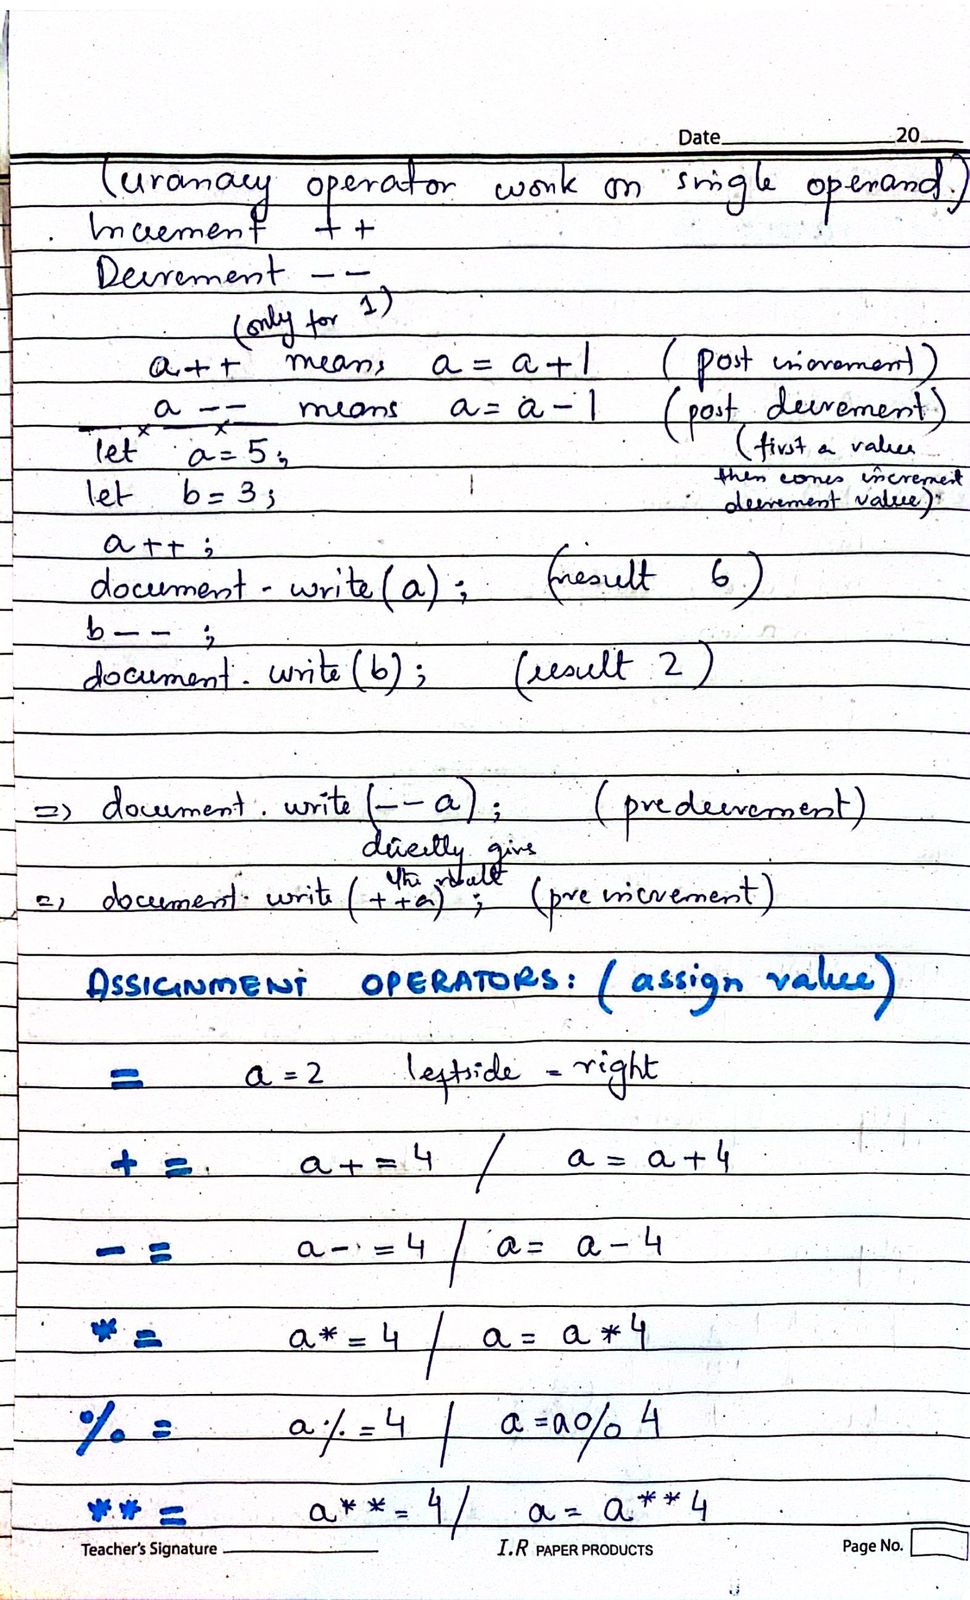 Date 20
(uranacy operator work on single operand.)
Increment ++
Decrement --
(only for 1)
a++ means a = a+1 (post increment)
a -- means a = a-1 (post decrement)
let a = 5; (first a value
then comes increment
let b = 3; decrement value)
a++ ;
document.write(a); (result 6)
b-- ;
document.write(b); (result 2)
=> document.write(--a); (predecrement)
directly give
the result
=> document.write(++a); (pre increment)
ASSIGNMENT OPERATORS: (assign value)
= a = 2 leftside = right
+= a+=4 / a = a+4
-= a-=4 / a = a-4
*= a*=4 / a = a*4
%= a%=4 / a=a%4
**= a**=4 / a = a**4
Teacher's Signature I.R PAPER PRODUCTS Page No.